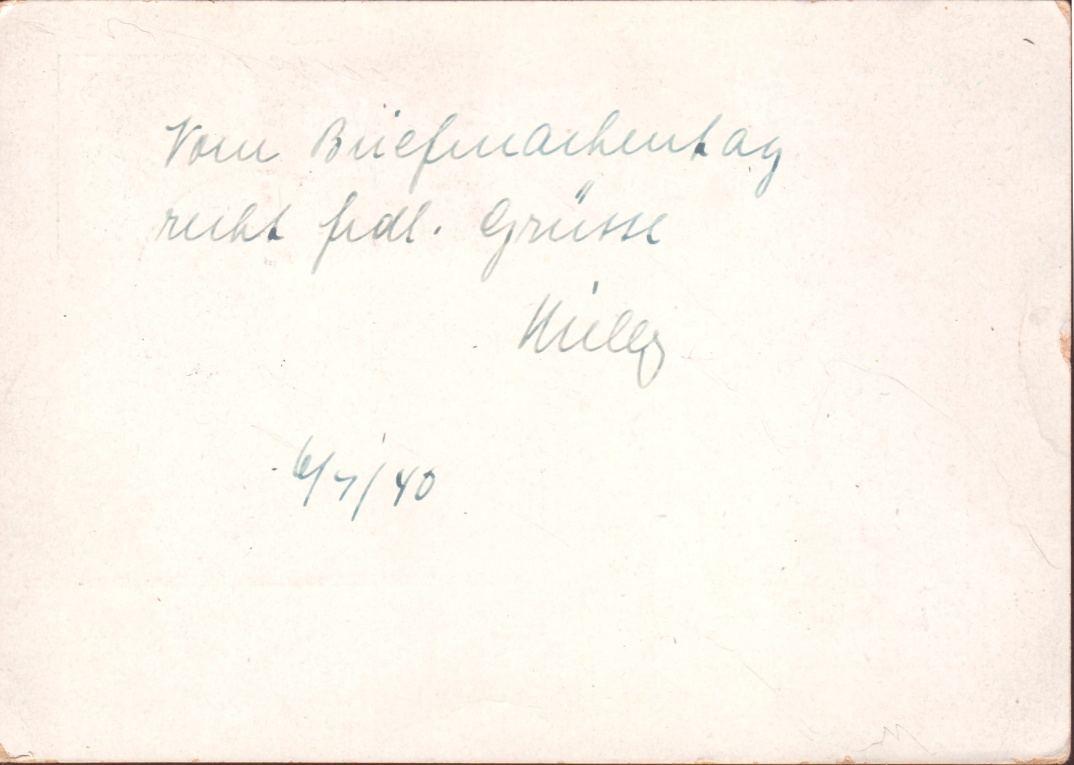 Vom Briefmarkentag
recht frdl. Grüsse
Willy
6/7/40